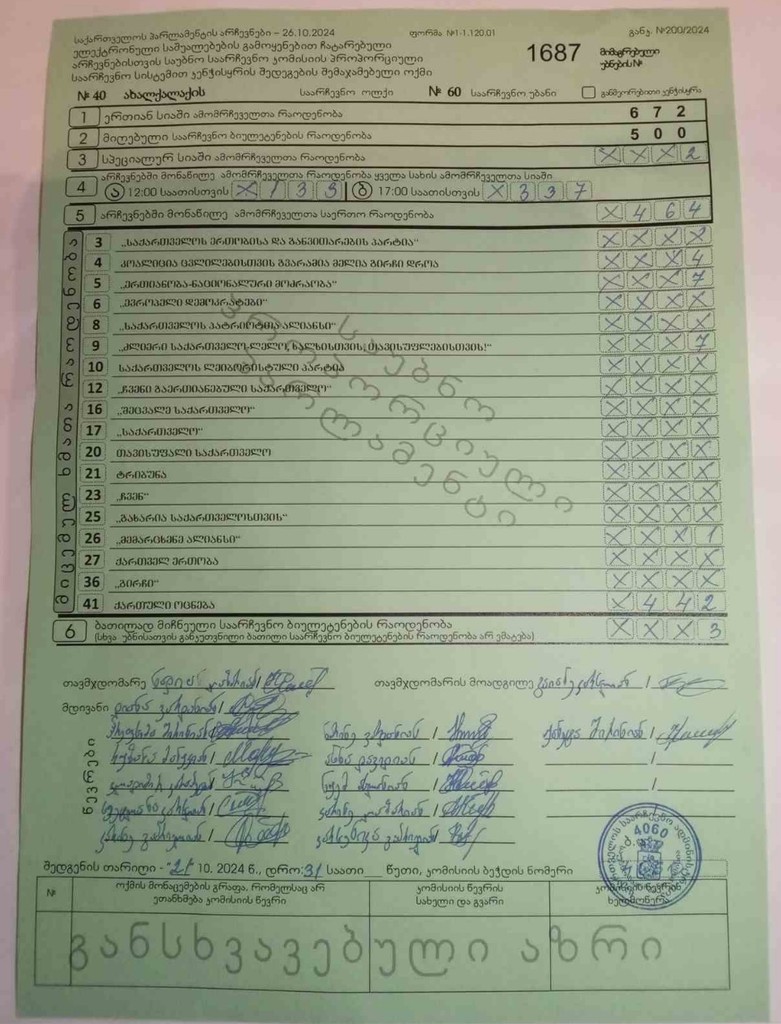 საქართველოს პარლამენტის არჩევნები – 26.10.2024 ფორმა №1-1.120.01 განკ. №200/2024
ელექტრონული საშუალებების გამოყენებით ჩატარებული
არჩევნებისთვის საუბნო საარჩევნო კომისიის პროპორციული
საარჩევნო სისტემით კენჭისყრის შედეგების შემაჯამებელი ოქმი
1687 მიმაგრებული უბნების №
№ 40 ახალქალაქის საარჩევნო ოლქი № 60 საარჩევნო უბანი განმეორებითი კენჭისყრა
1 ერთიან სიაში ამომრჩეველთა რაოდენობა 6 7 2
2 მიღებული საარჩევნო ბიულეტენების რაოდენობა 5 0 0
3 სპეციალურ სიაში ამომრჩეველთა რაოდენობა X X X 2
არჩევნებში მონაწილე ამომრჩეველთა რაოდენობა ყველა სახის ამომრჩეველთა სიაში
4 ა 12:00 საათისთვის X 1 3 3 ბ 17:00 საათისთვის X 3 3 7
5 არჩევნებში მონაწილე ამომრჩეველთა საერთო რაოდენობა X 4 6 4
მიცემულ ხმათა რაოდენობა
3 „საქართველოს ერთობისა და განვითარების პარტია“ X X X X
4 კოალიცია ცვლილებისთვის გვარამია მელია გირჩი დროა X X X 4
5 „ერთიანობა-ნაციონალური მოძრაობა“ X X X 7
6 „ევროპელი დემოკრატები“ X X X X
8 „საქართველოს პატრიოტთა ალიანსი“ X X X X
9 „ძლიერი საქართველო-ლელო, ხალხისთვის, თავისუფლებისთვის!“ X X X 7
10 საქართველოს ლეიბორისტული პარტია X X X X
12 „ჩვენი გაერთიანებული საქართველო“ X X X X
16 „შეცვალე საქართველო“ X X X X
17 „საქართველო“ X X X X
20 თავისუფალი საქართველო X X X X
21 ტრიბუნა X X X X
23 „ჩვენ“ X X X X
25 „გახარია საქართველოსთვის“ X X X X
26 „მემარცხენე ალიანსი“ X X X 1
27 ქართველ ერთობა X X X X
36 „გირჩი“ X X X X
41 ქართული ოცნება X 4 4 2
საუბნო
პროპორციული
პარლამენტი
6 ბათილად მიჩნეული საარჩევნო ბიულეტენების რაოდენობა X X X 3
(სხვა უბნისათვის განკუთვნილი ბათილი საარჩევნო ბიულეტენების რაოდენობა არ ემატება)
თავმჯდომარე / თავმჯდომარის მოადგილე /
მდივანი /
წევრები
შედგენის თარიღი - 10. 2024 წ., დრო: საათი წუთი, კომისიის ბეჭდის ნომერი
4060
№ ოქმის მონაცემების გრაფა, რომელსაც არ ეთანხმება კომისიის წევრი კომისიის წევრის სახელი და გვარი კომისიის წევრის ხელმოწერა
განსხვავებული აზრი